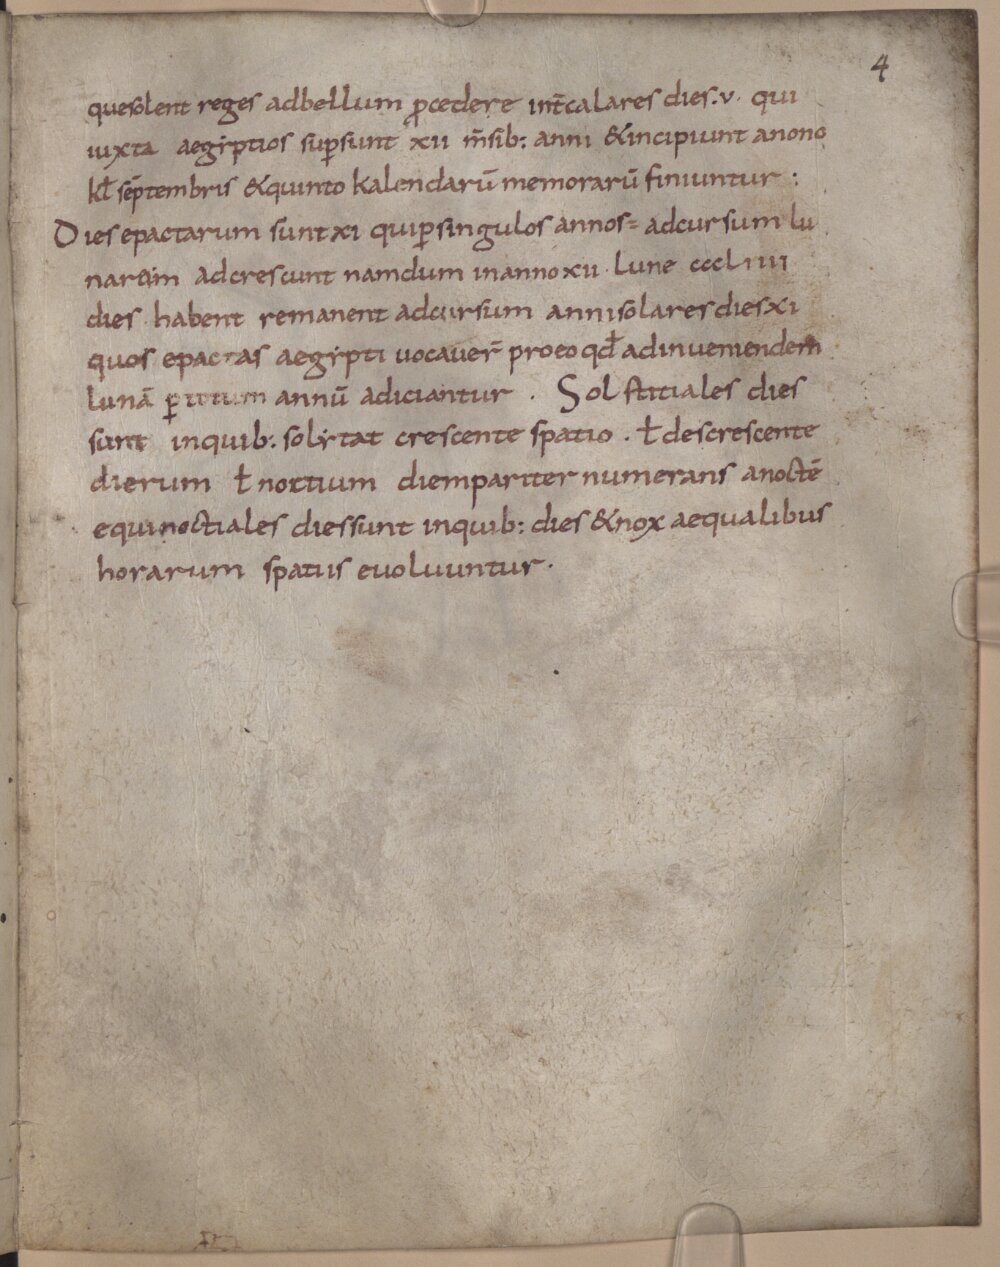 4
quesolent reges adbellum p̄cedere int̄calares dies.v. qui
iuxta aegẏptios sup̄sunt xii m̄sib: anni &incipiunt anono
kł sēptembris &quinto kalendarū memorarū finiuntur :
Dies epactarum sunt xi quip̄singulos annos adcursum lu
narem adcrescunt namdum inanno xii lune cccLiiii
dies habent remanent adcursum anni solares dies xi
quos epactas aegẏpti vocaver̄ proeo qđ adinveniendem
lunā p̄ totum annū adiciantur . Solstitiales dies
sunt inquib: sol ẏtat crescente spatio . ł descrescente
dierum ł noctium diempariter numerans anoctē
equinoctiales dies sunt inquib: dies &nox aequalibus
horarum spatiis evoluuntur .